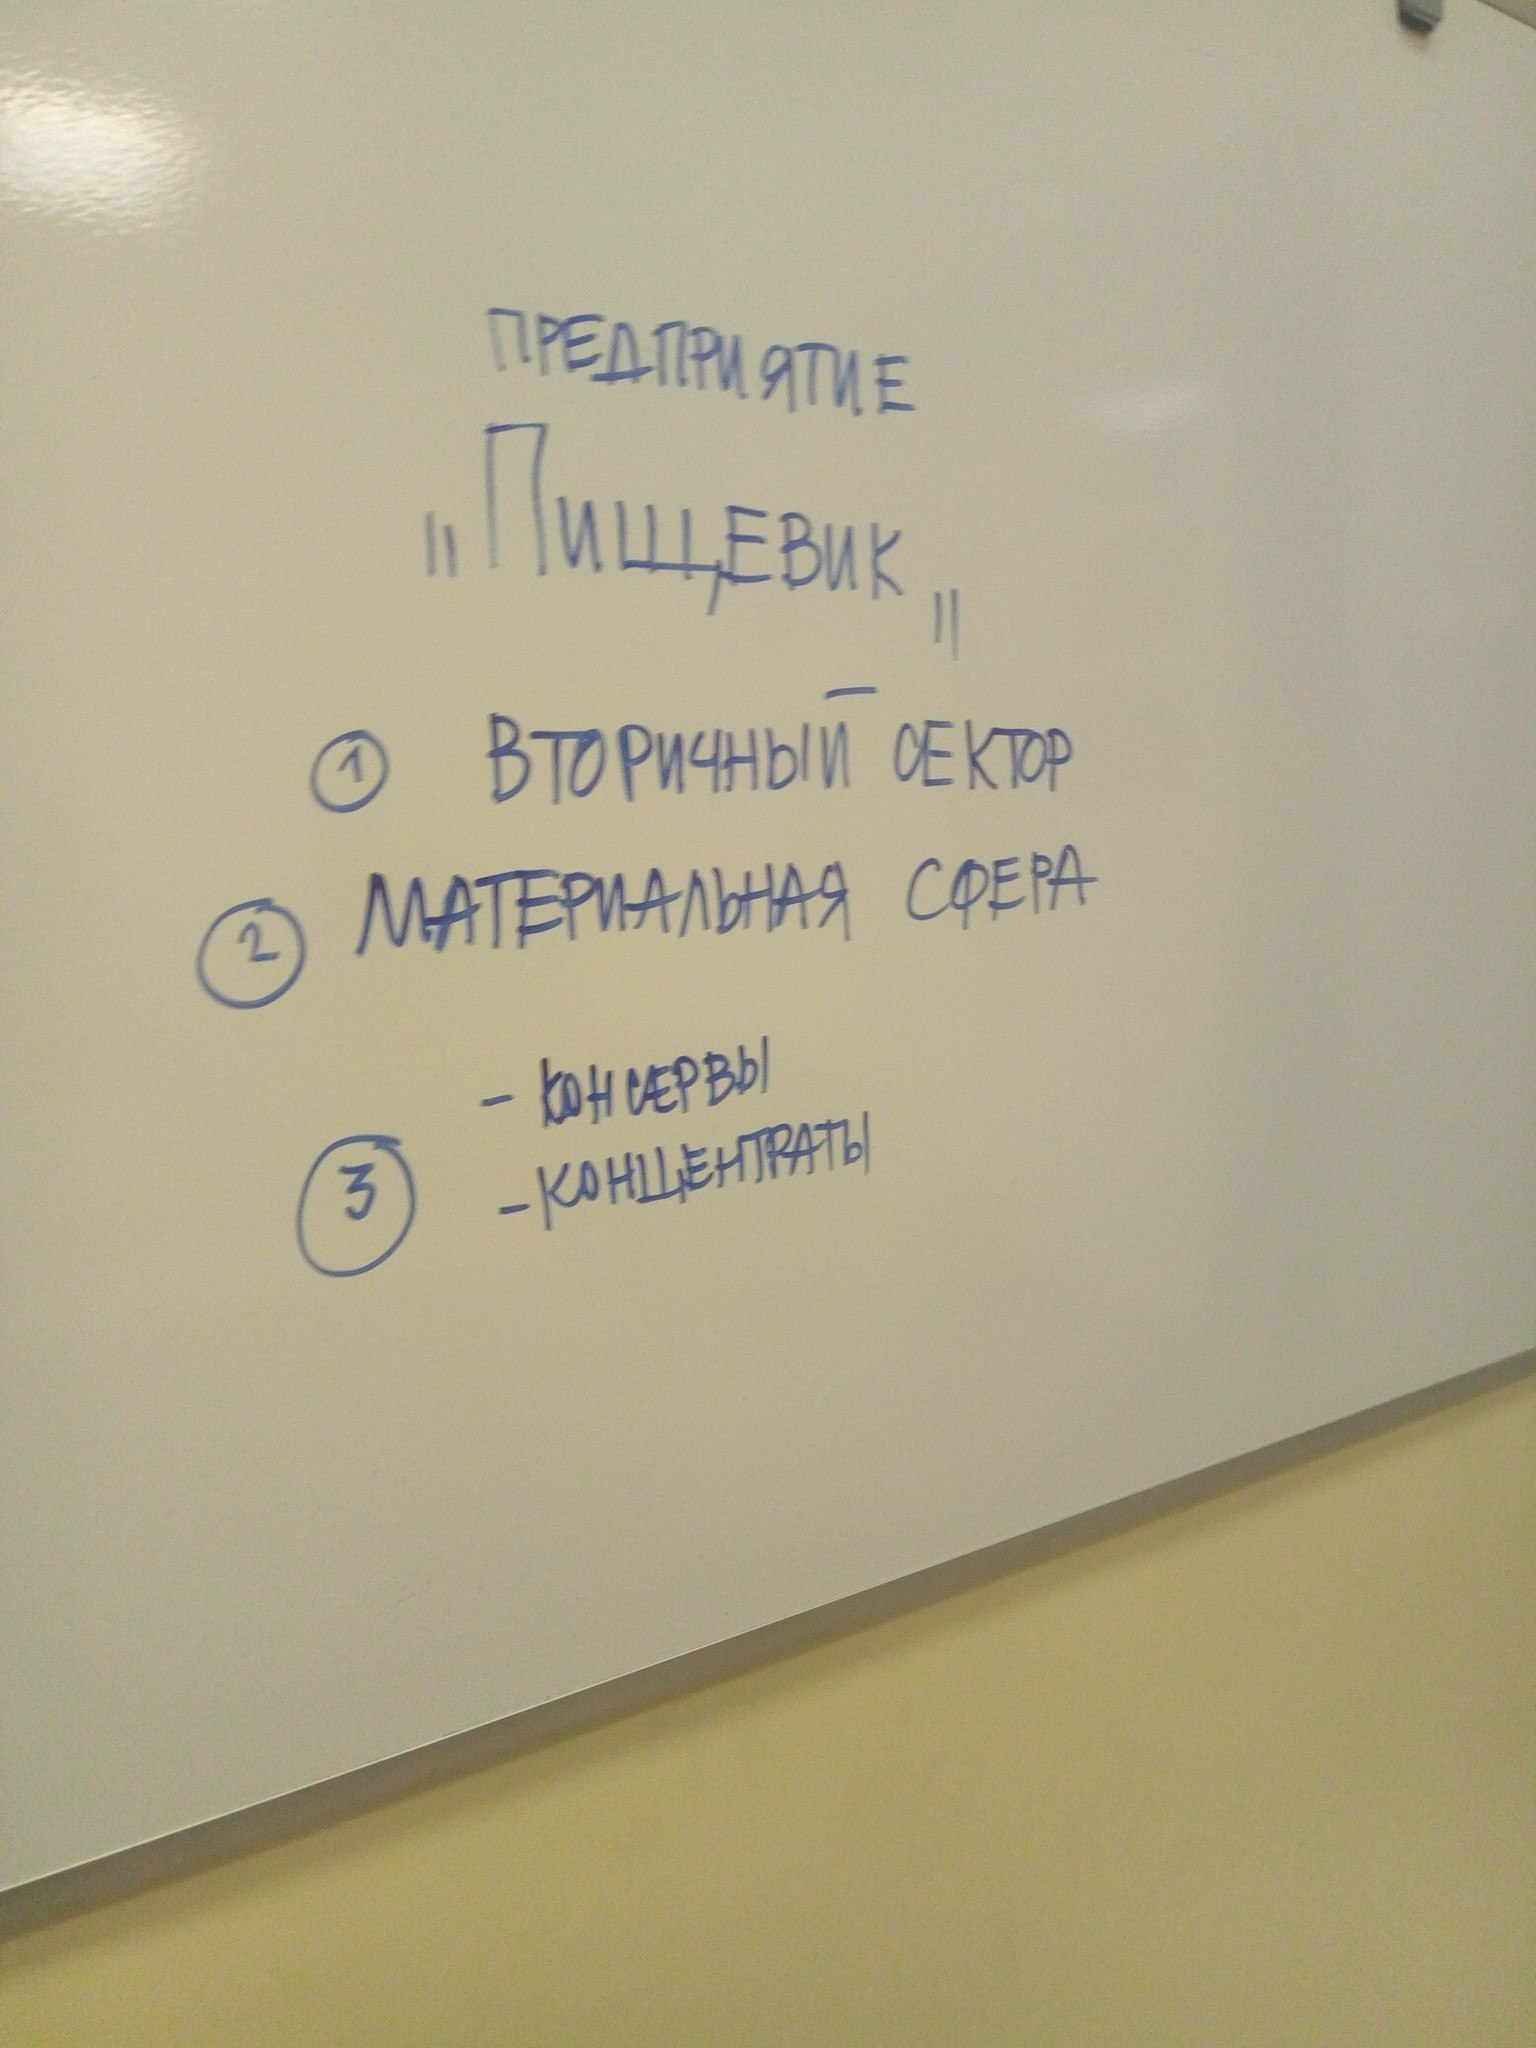 ПРЕДПРИЯТИЕ
"ПИЩЕВИК"
1 ВТОРИЧНЫЙ СЕКТОР
2 МАТЕРИАЛЬНАЯ СФЕРА
3 - КОНСЕРВЫ
- КОНЦЕНТРАТЫ